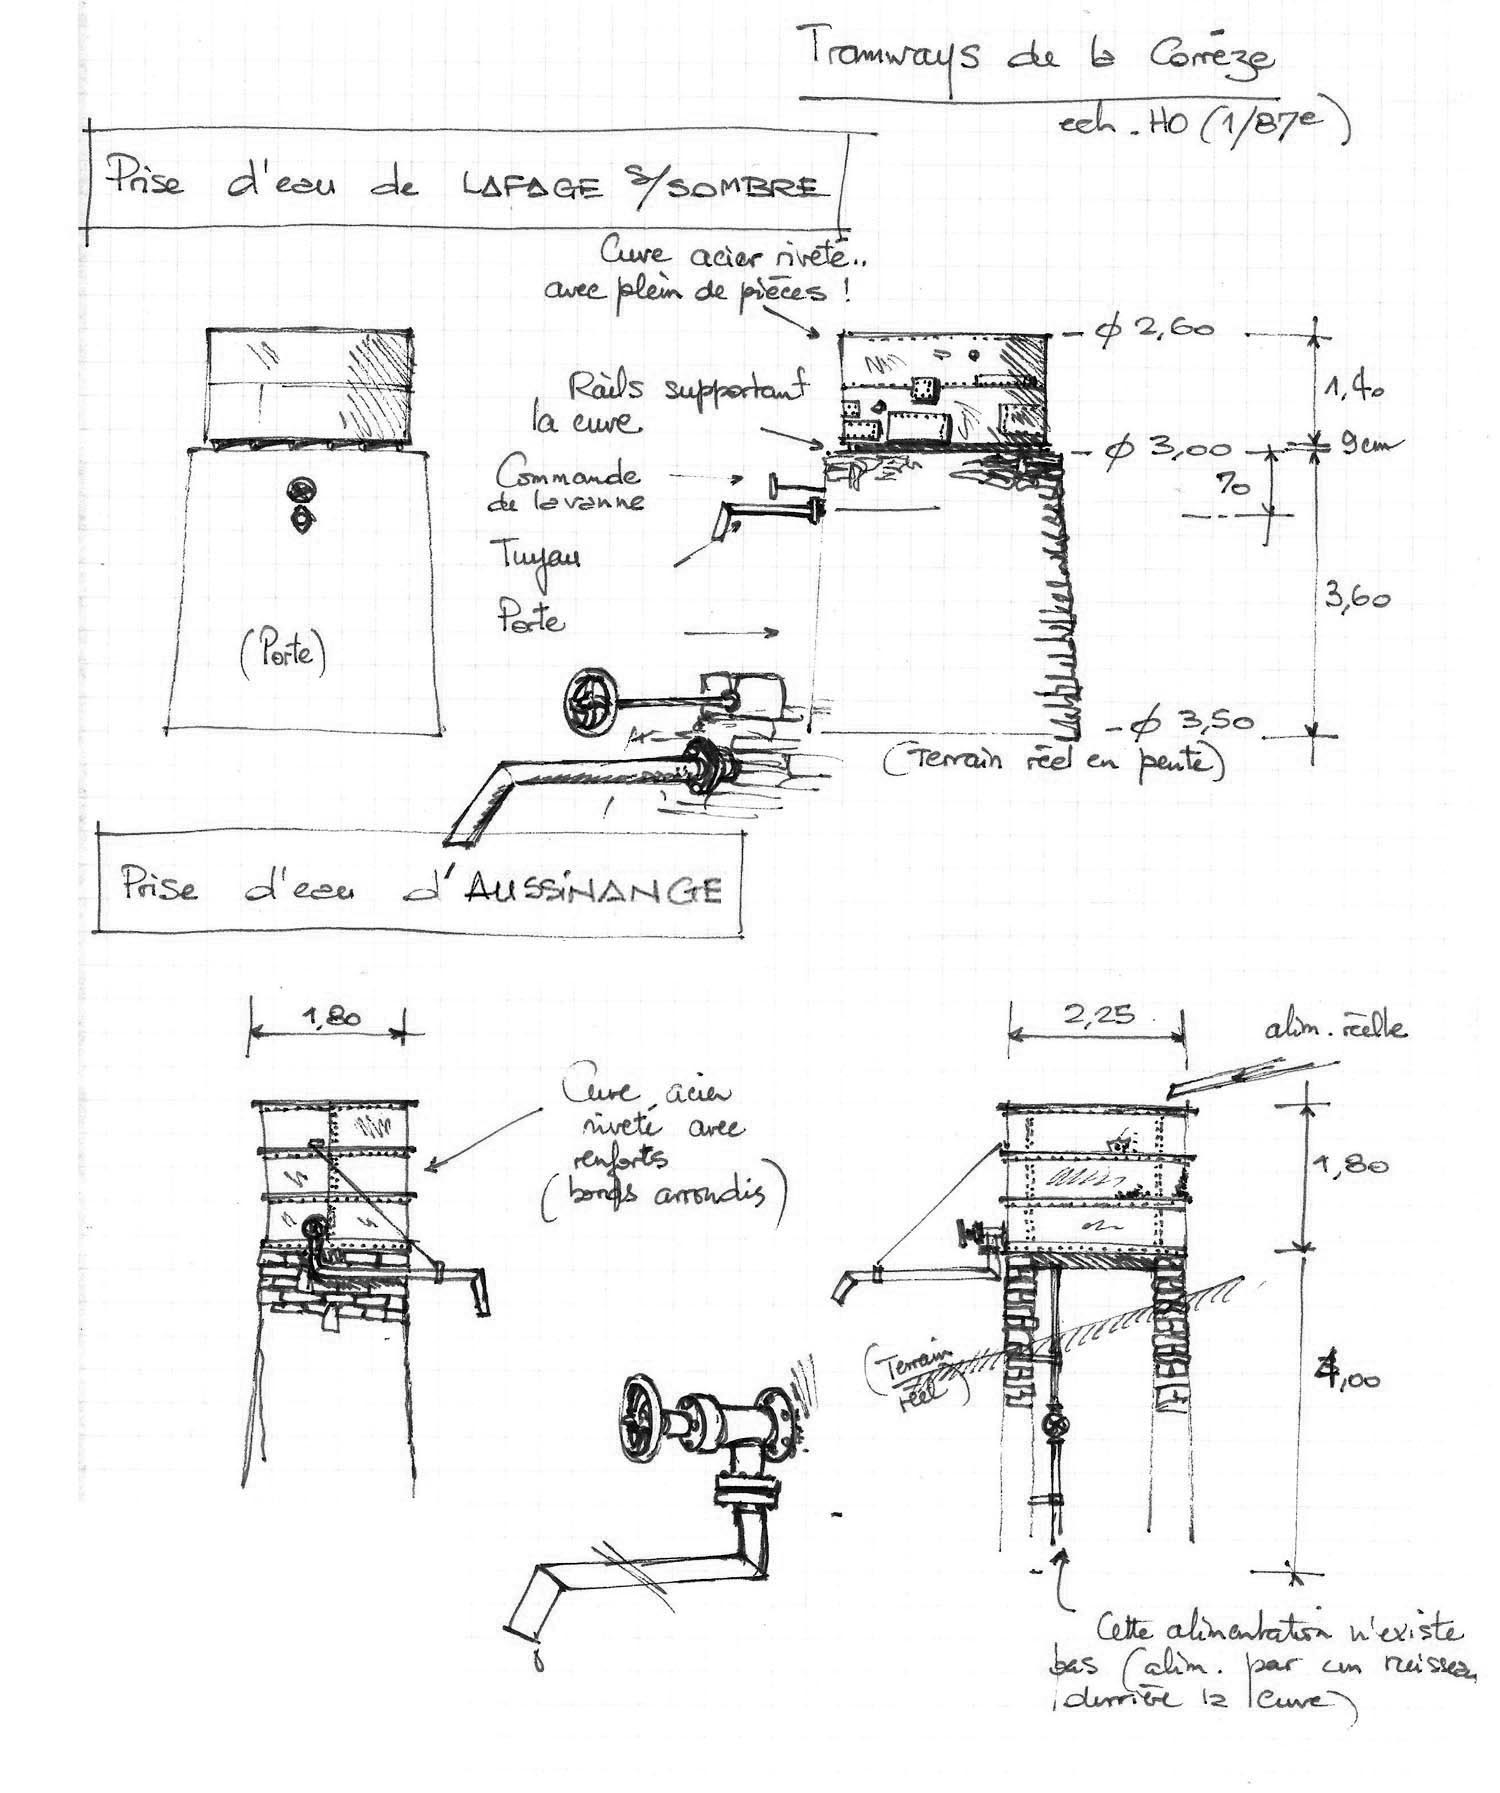 Tramways de la Corrèze
ech. HO (1/87e)
Prise d'eau de LAFAGE S/SOMBRE
Cuve acier riveté..
avec plein de pièces !
Rails supportant
la cuve
Commande
de la vanne
Tuyau
Porte
(Porte)
φ 2,60
1,40
φ 3,00
9cm
70
3,60
φ 3,50
(Terrain réel en pente)
Prise d'eau d'AUSSINANGE
1,80
2,25
alim. réelle
Cuve acier
riveté avec
renforts
(bords arrondis)
1,80
(Terrain
réel)
4,00
Cette alimentation n'existe
pas (alim. par un ruisseau
derrière la cuve)